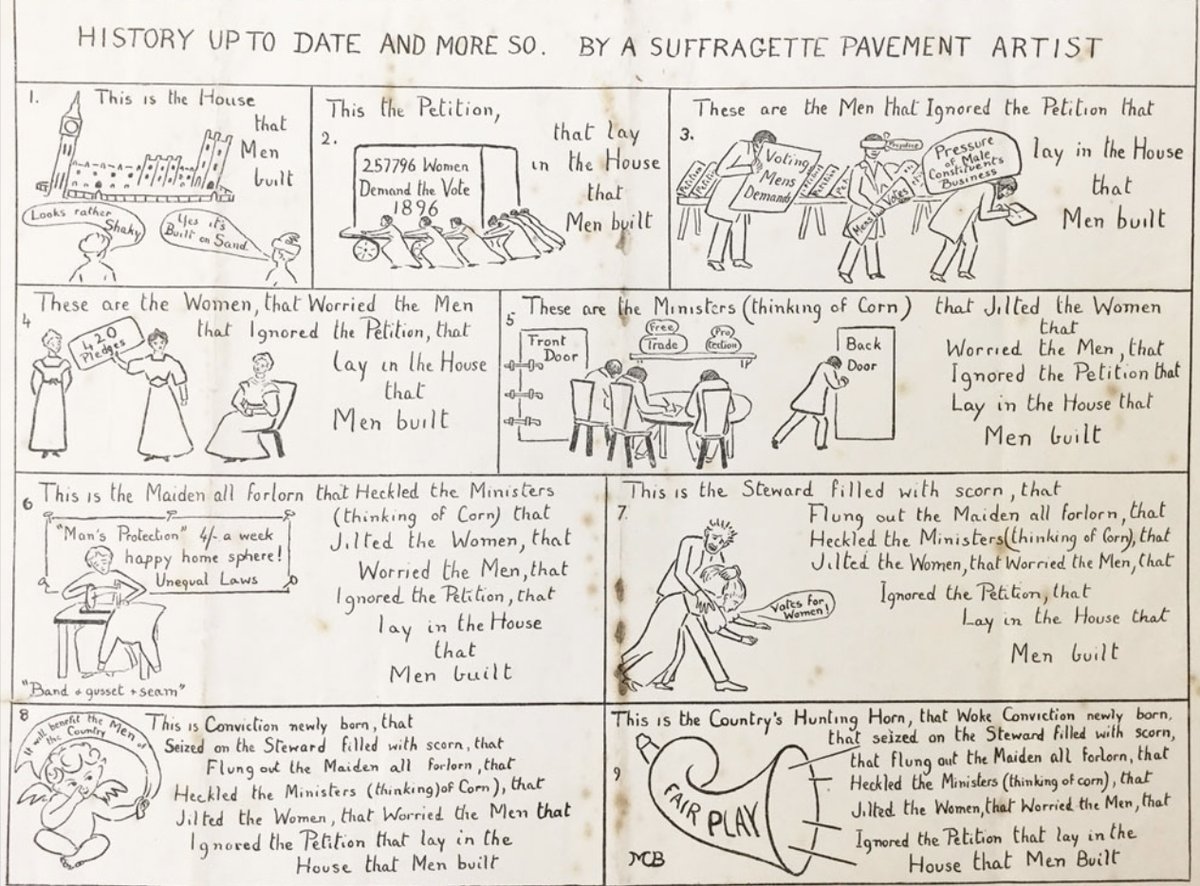 HISTORY UP TO DATE AND MORE SO. BY A SUFFRAGETTE PAVEMENT ARTIST
1.
This is the House
that
Men
built
Looks rather
Shaky
Yes it's
Built on Sand
This the Petition,
2.
that lay
in the House
that
Men built
257796 Women
Demand the Vote
1896
These are the Men that Ignored the Petition that
3.
lay in the House
that
Men built
Petition
Petition
Voting
Mens
Demands
Petition
Petition
Prejudice
Mens
Votes
Pressure
of Male
Constituents
Business
4
These are the Women, that Worried the Men
that Ignored the Petition, that
Lay in the House
that
Men built
420
Pledges
5
These are the Ministers (thinking of Corn) that Jilted the Women
that
Worried the Men, that
Ignored the Petition that
Lay in the House that
Men built
Front
Door
Free
Trade
Pro
tection
Back
Door
6
This is the Maiden all forlorn that Heckled the Ministers
(thinking of Corn) that
Jilted the Women, that
Worried the Men, that
Ignored the Petition, that
lay in the House
that
Men built
"Man's Protection" 4/- a week
happy home sphere!
Unequal Laws
"Band & gusset & seam"
7.
This is the Steward filled with scorn, that
Flung out the Maiden all forlorn, that
Heckled the Ministers (thinking of Corn), that
Jilted the Women, that Worried the Men, that
Ignored the Petition, that
Lay in the House that
Men built
Votes for
Women!
8
It will benefit the Men of
the Country
This is Conviction newly born, that
Seized on the Steward filled with scorn, that
Flung out the Maiden all forlorn, that
Heckled the Ministers (thinking) of Corn), that
Jilted the Women, that Worried the Men that
Ignored the Petition that lay in the
House that Men built
9
This is the Country's Hunting Horn, that Woke Conviction newly born,
that seized on the Steward filled with scorn,
that Flung out the Maiden all forlorn, that
Heckled the Ministers (thinking of corn), that
Jilted the Women, that Worried the Men, that
Ignored the Petition that lay in the
House that Men Built
FAIR PLAY
MCB